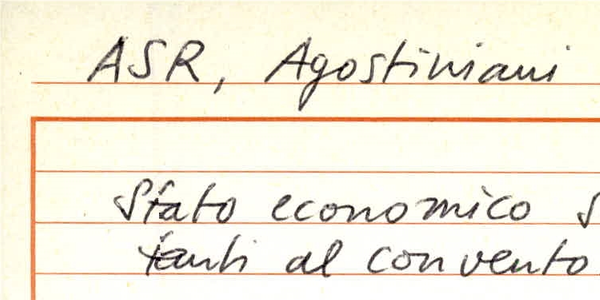 ASR, Agostiniani
Stato economico S
tanti al convento